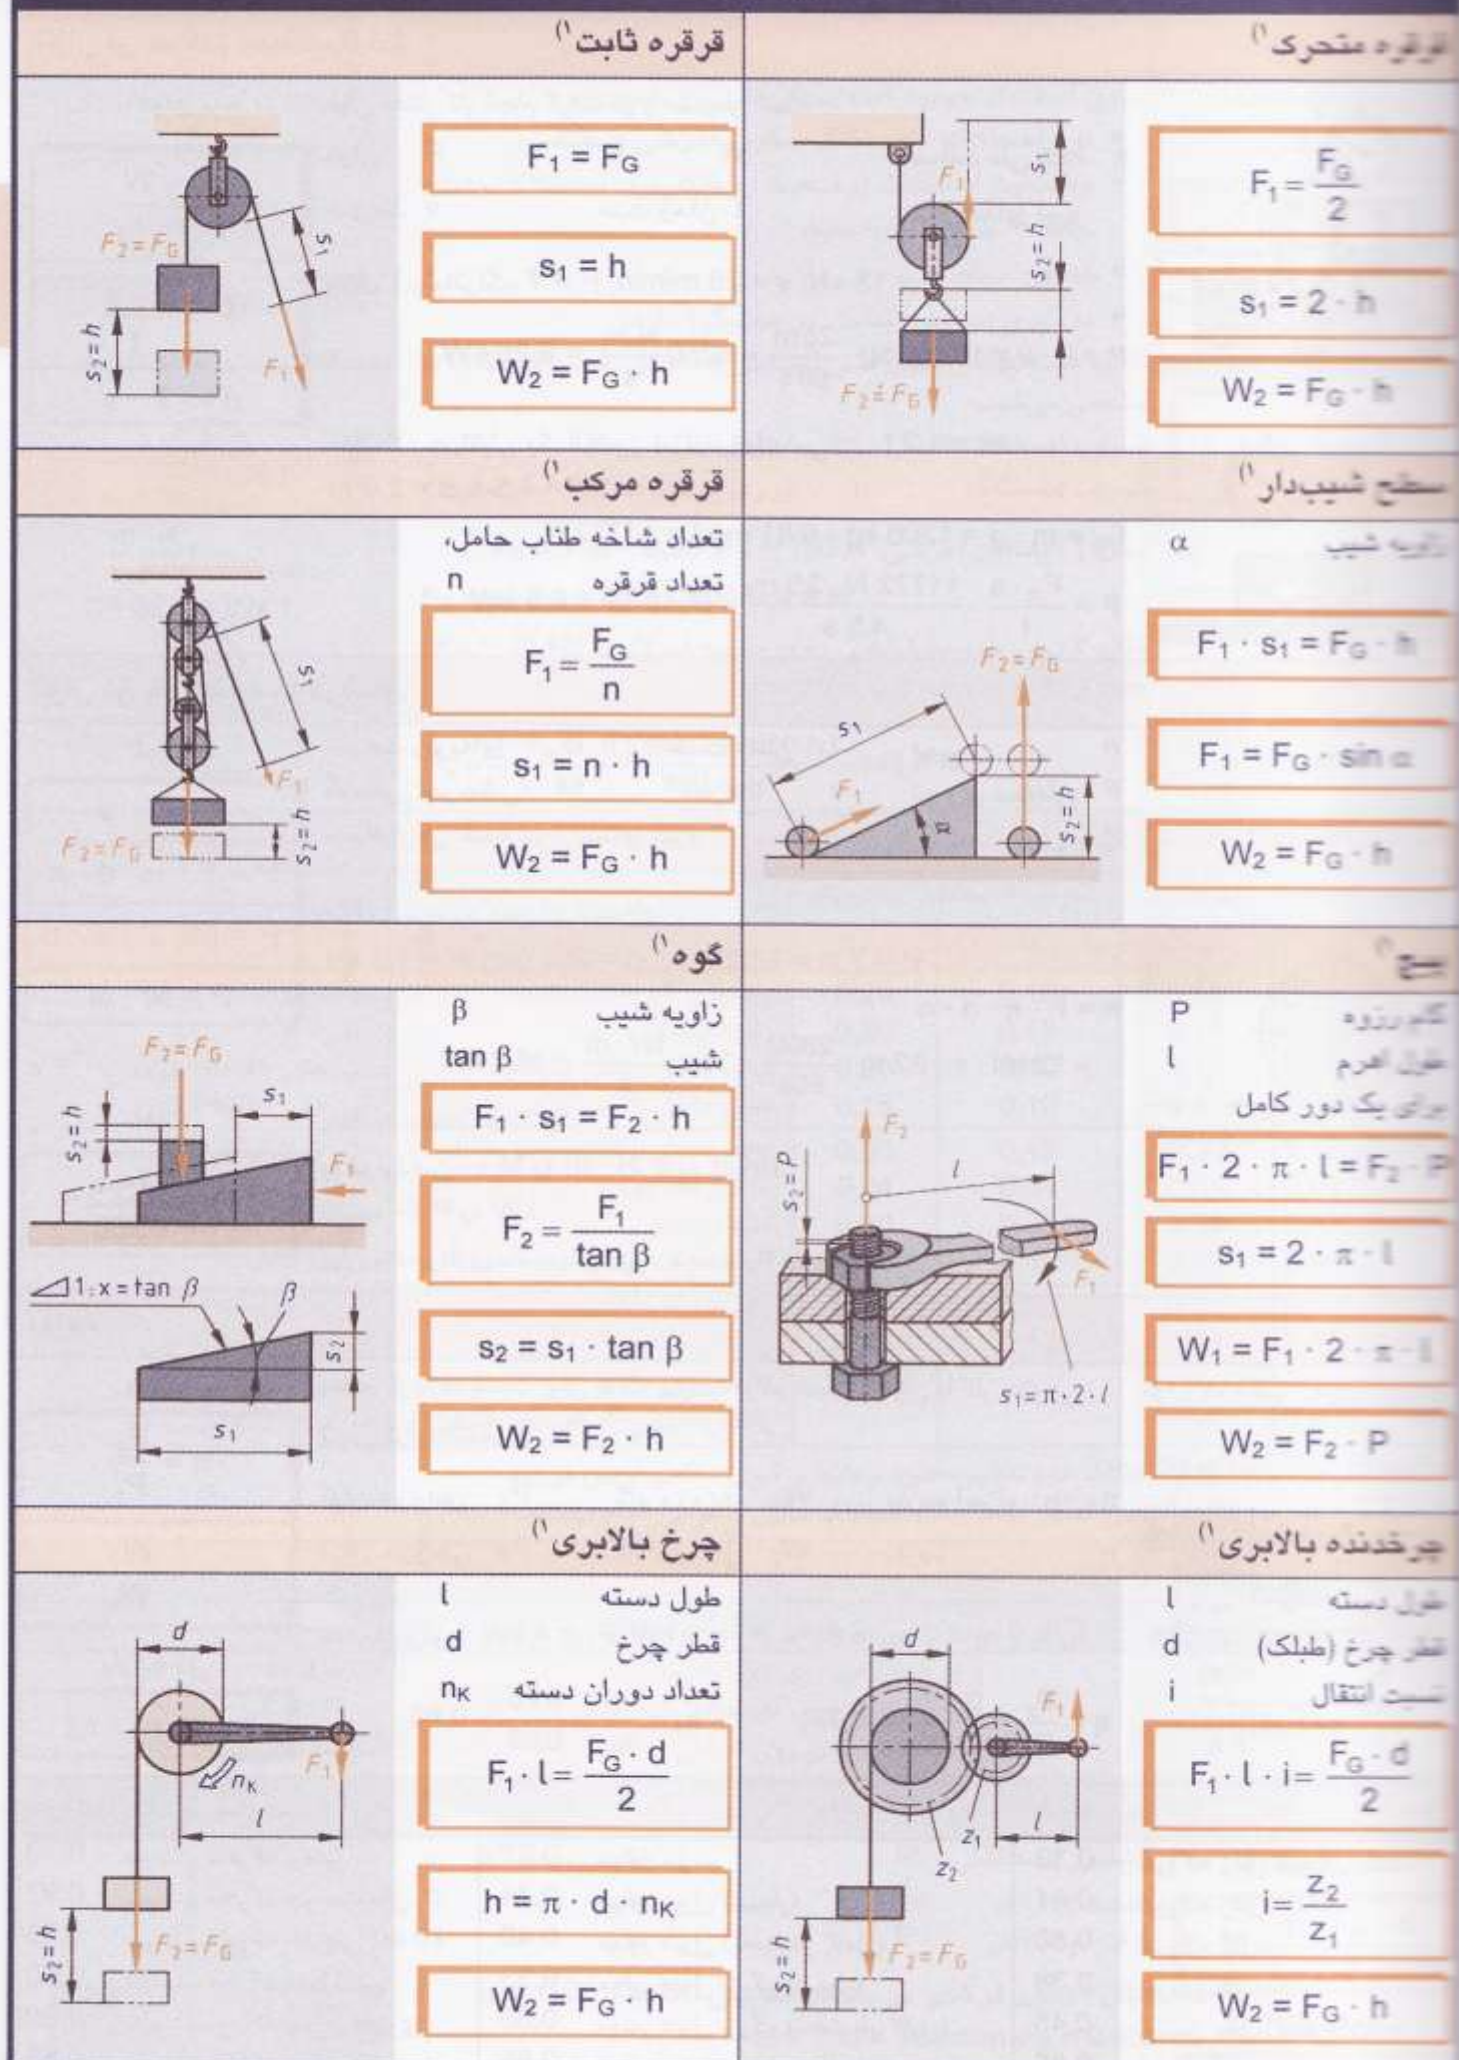 قرقره متحرک ۱)
F₁ = F_G / 2
s₁ = 2 · h
W₂ = F_G · h
F₁
s₁
s₂ = h
F₂ = F_G
قرقره ثابت ۱)
F₁ = F_G
s₁ = h
W₂ = F_G · h
F₂ = F_G
s₁
s₂ = h
F₁
سطح شیب‌دار ۱)
زاویه شیب α
F₁ · s₁ = F_G · h
F₁ = F_G · sin α
W₂ = F_G · h
F₂ = F_G
s₁
F₁
α
s₂ = h
قرقره مرکب ۱)
تعداد شاخه طناب حامل،
تعداد قرقره n
F₁ = F_G / n
s₁ = n · h
W₂ = F_G · h
s₁
F₁
F₂ = F_G
s₂ = h
پیچ ۱)
گام رزوه P
طول اهرم l
برای یک دور کامل
F₁ · 2 · π · l = F₂ · P
s₁ = 2 · π · l
W₁ = F₁ · 2 · π · l
W₂ = F₂ · P
F₂
s₂ = P
l
F₁
s₁ = π · 2 · l
گوه ۱)
زاویه شیب β
شیب tan β
F₁ · s₁ = F₂ · h
F₂ = F₁ / tan β
s₂ = s₁ · tan β
W₂ = F₂ · h
F₂ = F_G
s₁
s₂ = h
F₁
1:x = tan β
β
s₂
s₁
چرخدنده بالابری ۱)
طول دسته l
قطر چرخ (طبلک) d
نسبت انتقال i
F₁ · l · i = F_G · d / 2
i = z₂ / z₁
W₂ = F_G · h
d
F₁
z₁
l
z₂
s₂ = h
F₂ = F_G
چرخ بالابری ۱)
طول دسته l
قطر چرخ d
تعداد دوران دسته n_K
F₁ · l = F_G · d / 2
h = π · d · n_K
W₂ = F_G · h
d
F₁
n_K
l
s₂ = h
F₂ = F_G